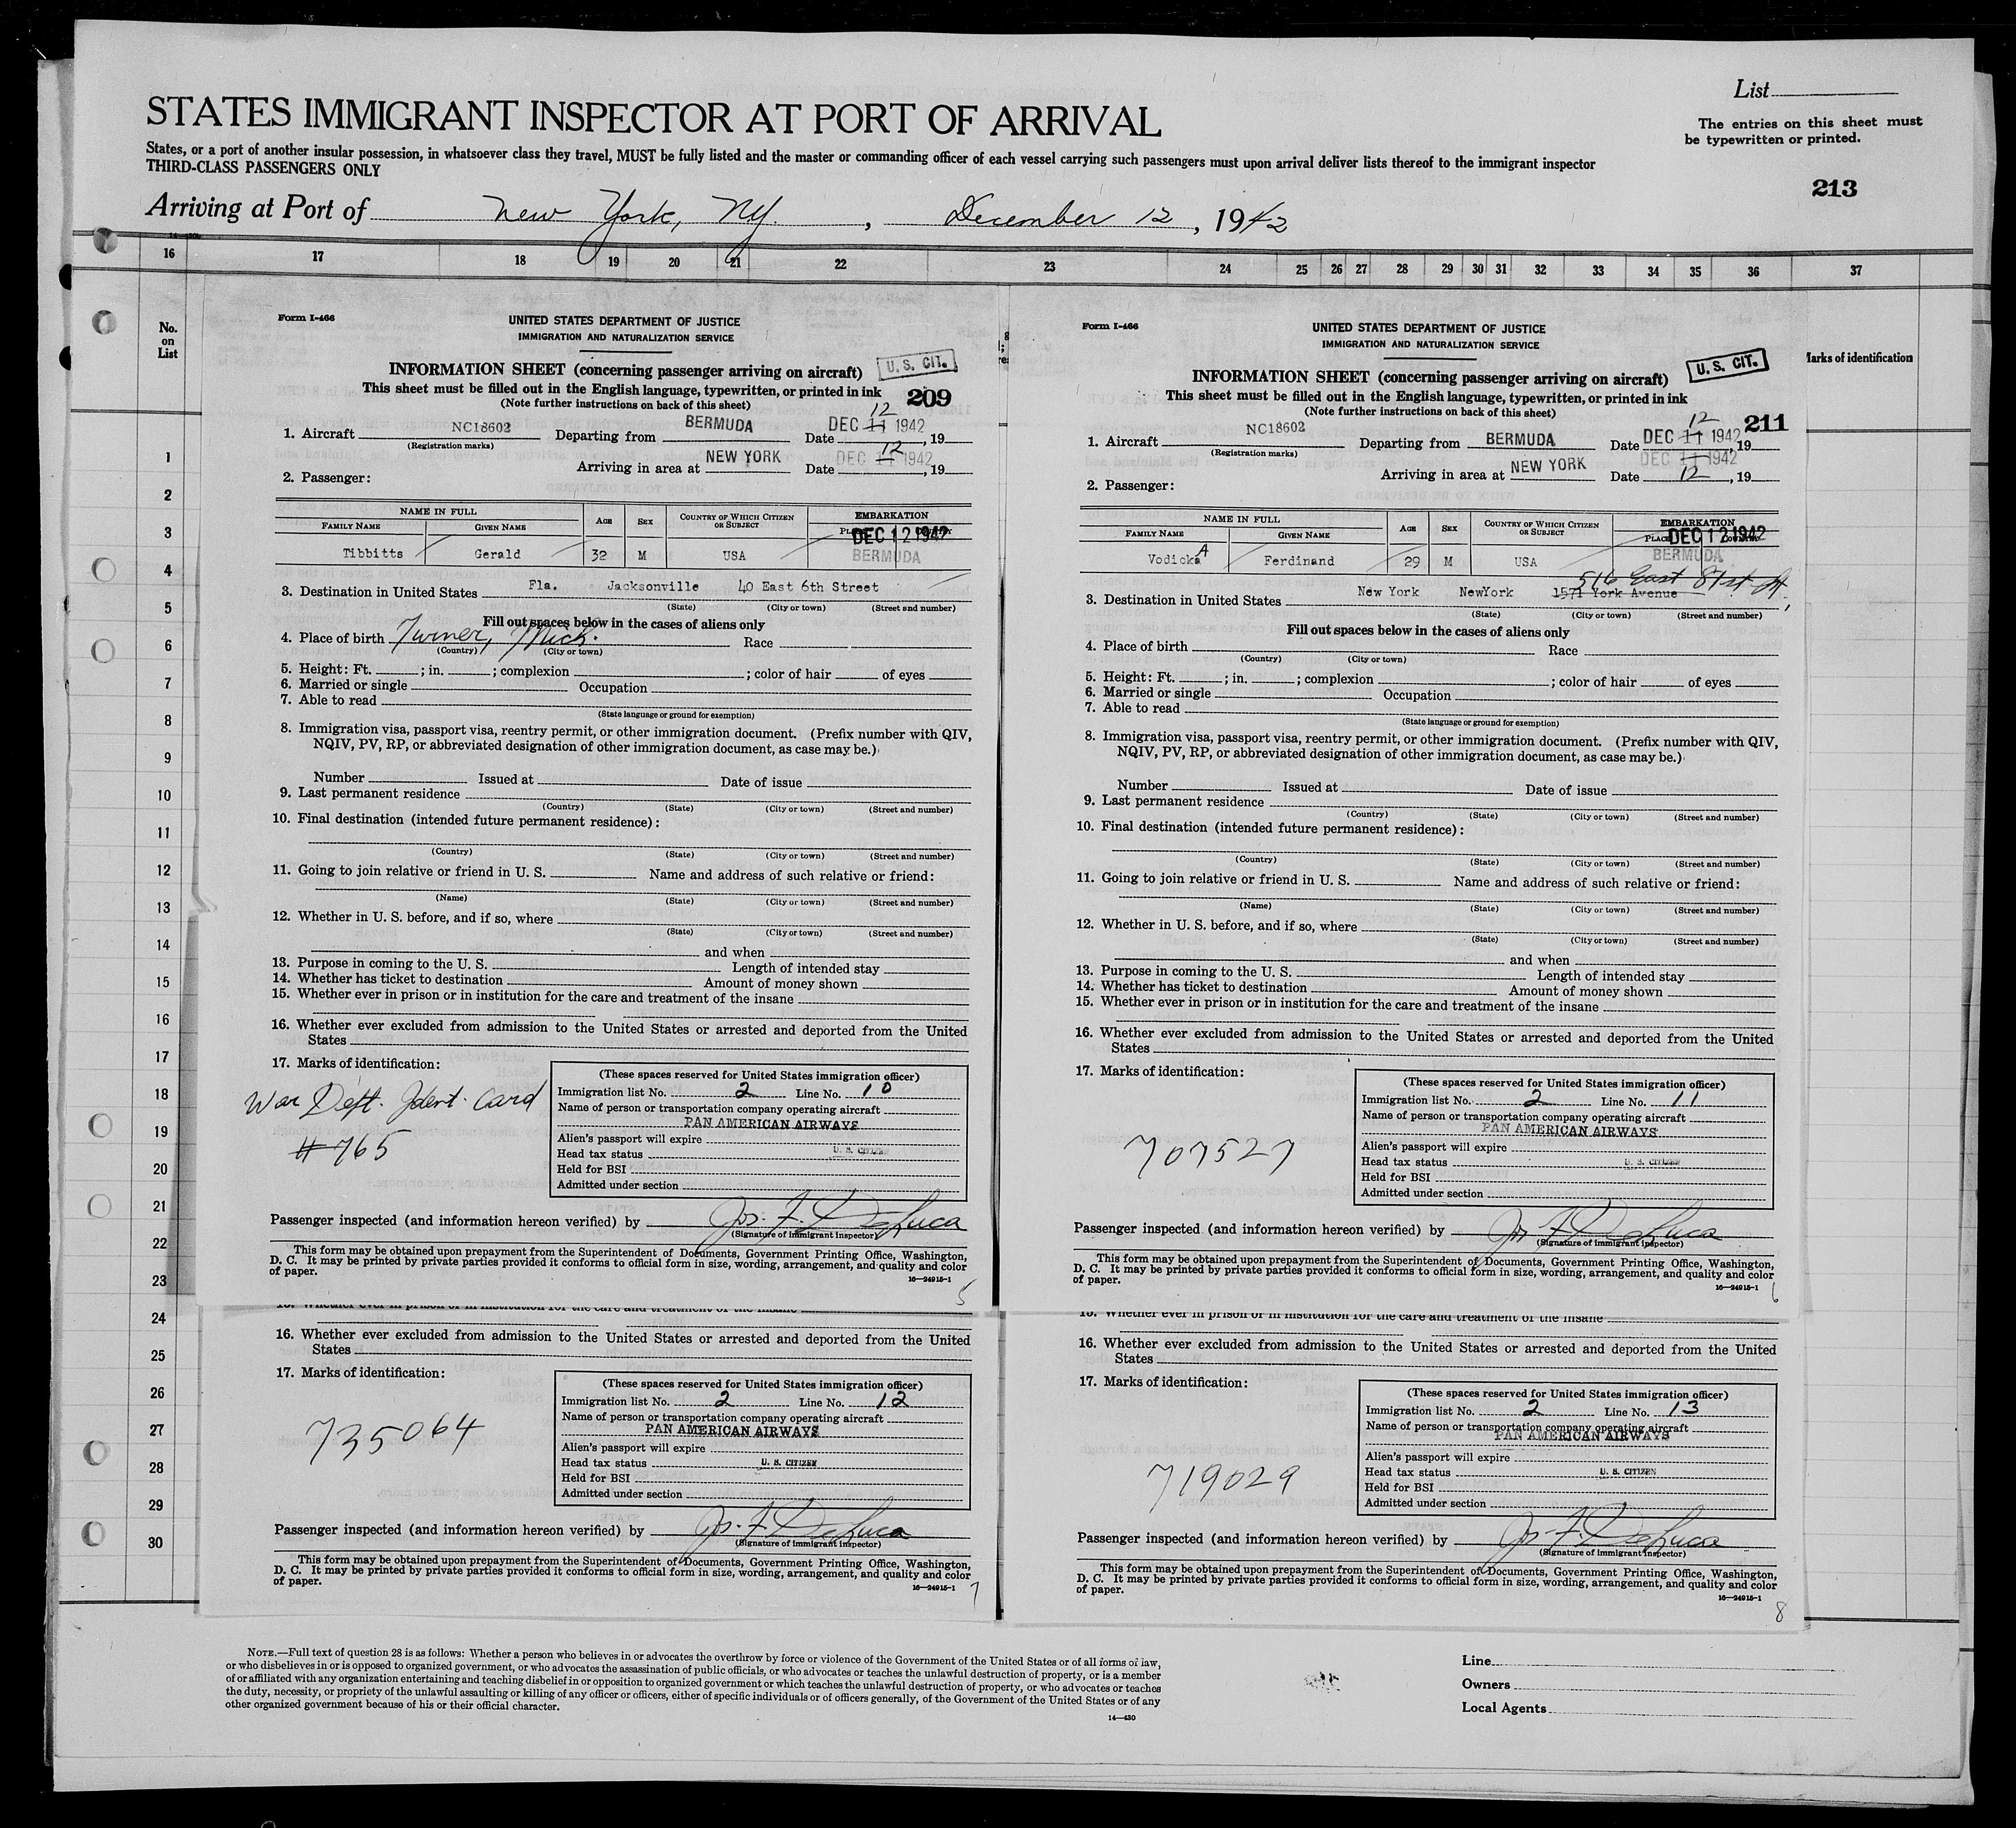 List
STATES IMMIGRANT INSPECTOR AT PORT OF ARRIVAL
The entries on this sheet must
be typewritten or printed.
States, or a port of another insular possession, in whatsoever class they travel, MUST be fully listed and the master or commanding officer of each vessel carrying such passengers must upon arrival deliver lists thereof to the immigrant inspector
THIRD-CLASS PASSENGERS ONLY
213
Arriving at Port of New York, NY. , December 12, 1942
16 17 18 19 20 21 22 23 24 25 26 27 28 29 30 31 32 33 34 35 36 37
No.
on
List
Marks of identification
1
2
3
4
5
6
7
8
9
10
11
12
13
14
15
16
17
18
19
20
21
22
23
24
25
26
27
28
29
30
Form I-466
UNITED STATES DEPARTMENT OF JUSTICE
IMMIGRATION AND NATURALIZATION SERVICE
U. S. CIT.
INFORMATION SHEET (concerning passenger arriving on aircraft)
This sheet must be filled out in the English language, typewritten, or printed in ink
209
(Note further instructions on back of this sheet)
12
1. Aircraft NC18602 Departing from BERMUDA Date DEC 11 1942, 19
(Registration marks)
12
Arriving in area at NEW YORK Date DEC 11 1942, 19
2. Passenger:
NAME IN FULL AGE SEX COUNTRY OF WHICH CITIZEN OR SUBJECT EMBARKATION
FAMILY NAME GIVEN NAME DEC 12 1942
Tibbitts Gerald 32 M USA BERMUDA
3. Destination in United States Fla. Jacksonville 40 East 6th Street
(State) (City or town) (Street and number)
Fill out spaces below in the cases of aliens only
4. Place of birth Turner, Mich. Race
(Country) (City or town)
5. Height: Ft. ; in. ; complexion ; color of hair of eyes
6. Married or single Occupation
7. Able to read
(State language or ground for exemption)
8. Immigration visa, passport visa, reentry permit, or other immigration document. (Prefix number with QIV,
NQIV, PV, RP, or abbreviated designation of other immigration document, as case may be.)
Number Issued at Date of issue
9. Last permanent residence
(Country) (State) (City or town) (Street and number)
10. Final destination (intended future permanent residence):
(Country) (State) (City or town) (Street and number)
11. Going to join relative or friend in U. S. Name and address of such relative or friend:
(Name) (State) (City or town) (Street and number)
12. Whether in U. S. before, and if so, where
(State) (City or town) (Street and number)
and when
13. Purpose in coming to the U. S. Length of intended stay
14. Whether has ticket to destination Amount of money shown
15. Whether ever in prison or in institution for the care and treatment of the insane
16. Whether ever excluded from admission to the United States or arrested and deported from the United
States
17. Marks of identification:
War Dept. Ident. Card
#765
(These spaces reserved for United States immigration officer)
Immigration list No. 2 Line No. 10
Name of person or transportation company operating aircraft
PAN AMERICAN AIRWAYS
Alien's passport will expire
Head tax status U. S. CITIZEN
Held for BSI
Admitted under section
Passenger inspected (and information hereon verified) by Jos. F. DeLuca
(Signature of immigrant inspector)
This form may be obtained upon prepayment from the Superintendent of Documents, Government Printing Office, Washington,
D. C. It may be printed by private parties provided it conforms to official form in size, wording, arrangement, and quality and color
of paper.
16—24915-1
5
Form I-466
UNITED STATES DEPARTMENT OF JUSTICE
IMMIGRATION AND NATURALIZATION SERVICE
U. S. CIT.
INFORMATION SHEET (concerning passenger arriving on aircraft)
This sheet must be filled out in the English language, typewritten, or printed in ink
(Note further instructions on back of this sheet)
12 211
1. Aircraft NC18602 Departing from BERMUDA Date DEC 11 1942, 19
(Registration marks)
Arriving in area at NEW YORK Date DEC 11 1942 12, 19
2. Passenger:
NAME IN FULL AGE SEX COUNTRY OF WHICH CITIZEN OR SUBJECT EMBARKATION
FAMILY NAME GIVEN NAME PLACE COUNTRY DEC 12 1942
Vodicka A Ferdinand 29 M USA BERMUDA
516 East 81st St.,
3. Destination in United States New York NewYork 1571 York Avenue
(State) (City or town) (Street and number)
Fill out spaces below in the cases of aliens only
4. Place of birth Race
(Country) (City or town)
5. Height: Ft. ; in. ; complexion ; color of hair of eyes
6. Married or single Occupation
7. Able to read
(State language or ground for exemption)
8. Immigration visa, passport visa, reentry permit, or other immigration document. (Prefix number with QIV,
NQIV, PV, RP, or abbreviated designation of other immigration document, as case may be.)
Number Issued at Date of issue
9. Last permanent residence
(Country) (State) (City or town) (Street and number)
10. Final destination (intended future permanent residence):
(Country) (State) (City or town) (Street and number)
11. Going to join relative or friend in U. S. Name and address of such relative or friend:
(Name) (State) (City or town) (Street and number)
12. Whether in U. S. before, and if so, where
(State) (City or town) (Street and number)
and when
13. Purpose in coming to the U. S. Length of intended stay
14. Whether has ticket to destination Amount of money shown
15. Whether ever in prison or in institution for the care and treatment of the insane
16. Whether ever excluded from admission to the United States or arrested and deported from the United
States
17. Marks of identification:
707527
(These spaces reserved for United States immigration officer)
Immigration list No. 2 Line No. 11
Name of person or transportation company operating aircraft
PAN AMERICAN AIRWAYS
Alien's passport will expire
Head tax status U. S. CITIZEN
Held for BSI
Admitted under section
Passenger inspected (and information hereon verified) by Jos F DeLuca
(Signature of immigrant inspector)
This form may be obtained upon prepayment from the Superintendent of Documents, Government Printing Office, Washington,
D. C. It may be printed by private parties provided it conforms to official form in size, wording, arrangement, and quality and color
of paper.
16—24915-1
6
15. Whether ever in prison or in institution for the care and treatment of the insane
16. Whether ever excluded from admission to the United States or arrested and deported from the United
States
17. Marks of identification:
735064
(These spaces reserved for United States immigration officer)
Immigration list No. 2 Line No. 12
Name of person or transportation company operating aircraft
PAN AMERICAN AIRWAYS
Alien's passport will expire
Head tax status U. S. CITIZEN
Held for BSI
Admitted under section
Passenger inspected (and information hereon verified) by Jos. F DeLuca
(Signature of immigrant inspector)
This form may be obtained upon prepayment from the Superintendent of Documents, Government Printing Office, Washington,
D. C. It may be printed by private parties provided it conforms to official form in size, wording, arrangement, and quality and color
of paper.
16—24915-1
7
15. Whether ever in prison or in institution for the care and treatment of the insane
16. Whether ever excluded from admission to the United States or arrested and deported from the United
States
17. Marks of identification:
719029
(These spaces reserved for United States immigration officer)
Immigration list No. 2 Line No. 13
Name of person or transportation company operating aircraft
PAN AMERICAN AIRWAYS
Alien's passport will expire
Head tax status U. S. CITIZEN
Held for BSI
Admitted under section
Passenger inspected (and information hereon verified) by Jos. F. DeLuca
(Signature of immigrant inspector)
This form may be obtained upon prepayment from the Superintendent of Documents, Government Printing Office, Washington,
D. C. It may be printed by private parties provided it conforms to official form in size, wording, arrangement, and quality and color
of paper.
16—24915-1
8
NOTE.—Full text of question 28 is as follows: Whether a person who believes in or advocates the overthrow by force or violence of the Government of the United States or of all forms of law,
or who disbelieves in or is opposed to organized government, or who advocates the assassination of public officials, or who advocates or teaches the unlawful destruction of property, or is a member
of or affiliated with any organization entertaining and teaching disbelief in or opposition to organized government or which teaches the unlawful destruction of property, or who advocates or teaches
the duty, necessity, or propriety of the unlawful assaulting or killing of any officer or officers, either of specific individuals or of officers generally, of the Government of the United States or of any
other organized government because of his or their official character.
14—430
Line
Owners
Local Agents